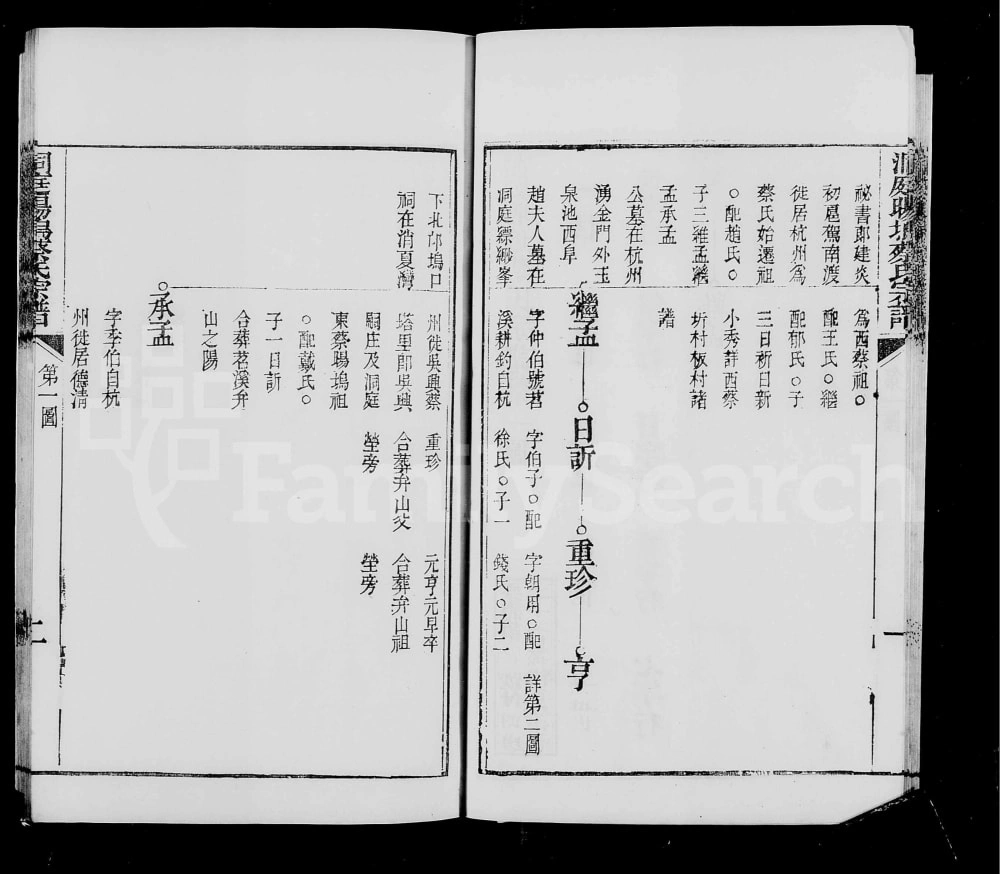 洞庭暘塢蔡氏宗譜
一
祕書郎建炎
初扈駕南渡
徙居杭州為
蔡氏始遷祖
○配趙氏○
子三維孟繼
孟承孟
公墓在杭州
湧金門外玉
泉池西阜
趙夫人墓在
洞庭縹緲峯
為西蔡祖○
配王氏○繼
配郁氏○子
三日新日新
小秀詳西蔡
圻村板村諸
譜
繼孟
字仲伯號苕
溪耕釣自杭
日訢
字伯子○配
徐氏○子一
重珍
字朝用○配
錢氏○子二
亨
詳第二圖
下北邙塢口
祠在消夏灣
州徙吳興蔡
塔里即吳興
嗣庄及洞庭
東蔡暘塢祖
○配戴氏○
子一日訢
合葬苕溪弁
山之陽
重珍
合葬弁山父
塋旁
元亨元早卒
合葬弁山祖
塋旁
承孟
字季伯自杭
州徙居德清
洞庭暘塢蔡氏宗譜
第一圖
二
FamilySearch